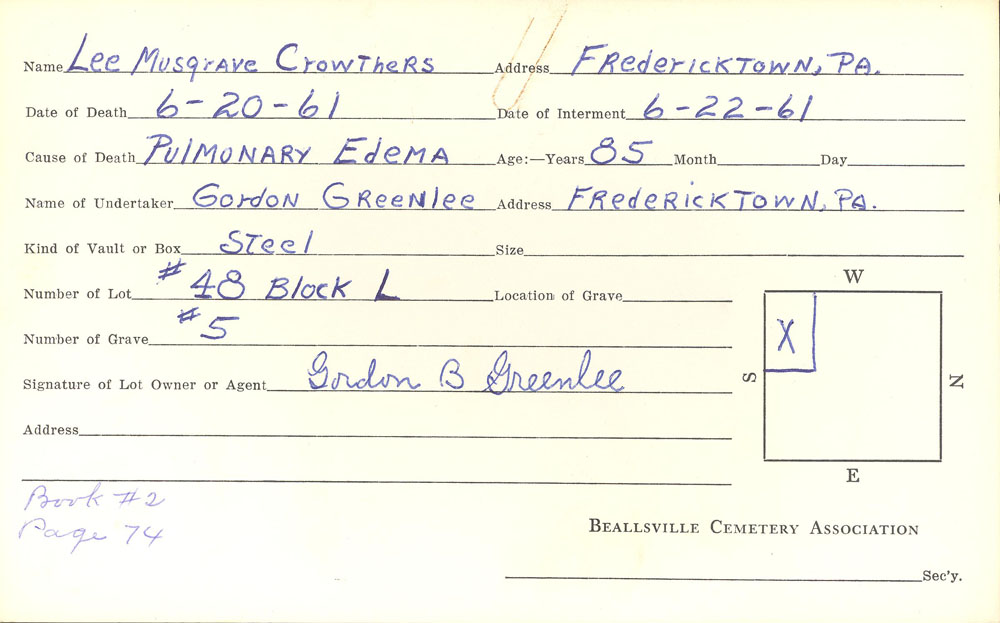 Name Lee Musgrave Crowthers Address Fredericktown, Pa.
Date of Death 6-20-61 Date of Interment 6-22-61
Cause of Death Pulmonary Edema Age:—Years 85 Month Day
Name of Undertaker Gordon Greenlee Address Fredericktown, Pa.
Kind of Vault or Box Steel Size
Number of Lot #48 Block L Location of Grave
Number of Grave #5
Signature of Lot Owner or Agent Gordon B Greenlee
Address
W
X
S
N
E
Book #2
Page 74
Beallsville Cemetery Association
Sec'y.